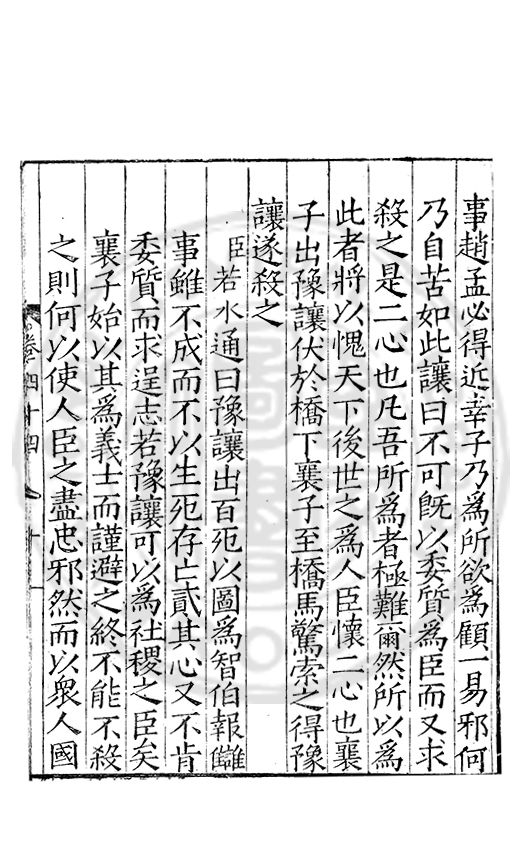 事趙孟必得近幸子乃爲所欲爲顧一易邪何
乃自苦如此讓曰不可旣以委質爲臣而又求
殺之是二心也凡吾所爲者極難爾然所以爲
此者將以愧天下後世之爲人臣懷二心也襄
子出豫讓伏於橋下襄子至橋馬驚索之得豫
讓遂殺之
臣若水通曰豫讓出百死以圖爲智伯報讎
事雖不成而不以生死存亡貳其心又不肯
委質而求逞志若豫讓可以爲社稷之臣矣
襄子始以其爲義士而謹避之終不能不殺
之則何以使人臣之盡忠邪然而以衆人國
卷四十四
十